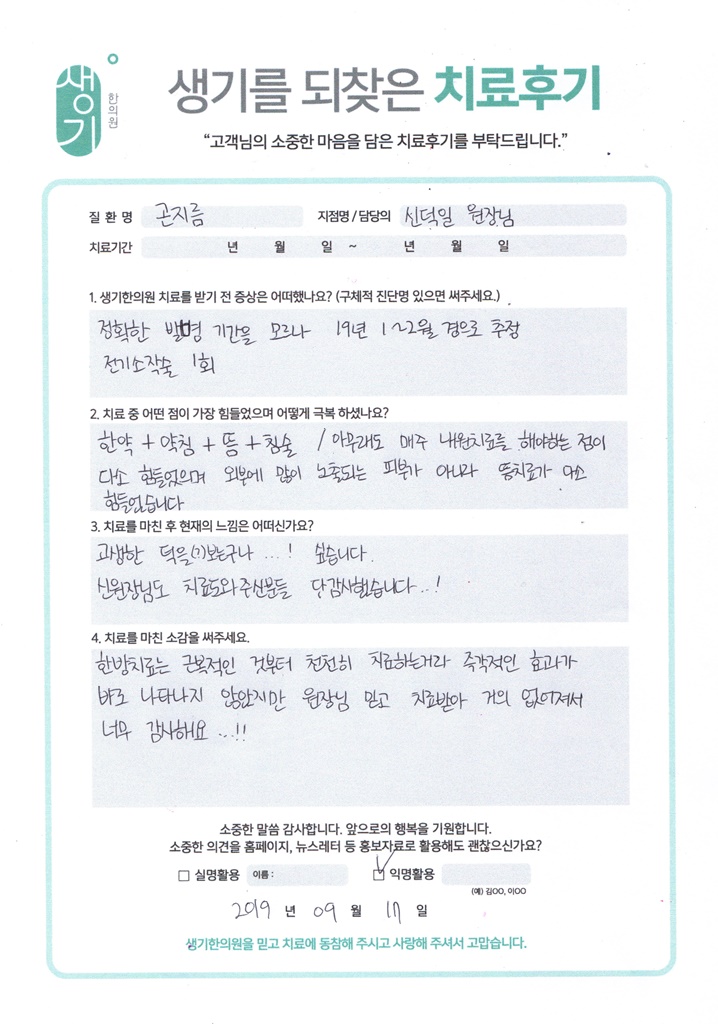 생기
한의원
생기를 되찾은 치료후기
“고객님의 소중한 마음을 담은 치료후기를 부탁드립니다.”
질 환 명 곤지름 지점명 / 담당의 신덕일 원장님
치료기간 년 월 일 ~ 년 월 일
1. 생기한의원 치료를 받기 전 증상은 어떠했나요? (구체적 진단명 있으면 써주세요.)
정확한 발병 기간을 모르나 19년 1~2월 경으로 추정
전기소작술 1회
2. 치료 중 어떤 점이 가장 힘들었으며 어떻게 극복 하셨나요?
한약 + 약침 + 뜸 + 침술 / 아무래도 매주 내원치료를 해야하는 점이
다소 힘들었으며 외부에 많이 노출되는 피부가 아니라 뜸치료가 다소
힘들었습니다
3. 치료를 마친 후 현재의 느낌은 어떠신가요?
고생한 덕을(?)보는구나 ...! 싶습니다.
신원장님도 치료도와주신분들 다 감사했습니다..!
4. 치료를 마친 소감을 써주세요.
한방치료는 근복적인 것부터 천천히 치료하는거라 즉각적인 효과가
바로 나타나지 않았지만 원장님 믿고 치료받아 거의 없어져서
너무 감사해요 ...!!
소중한 말씀 감사합니다. 앞으로의 행복을 기원합니다.
소중한 의견을 홈페이지, 뉴스레터 등 홍보자료로 활용해도 괜찮으신가요?
실명활용 이름 : 익명활용
(예) 김OO, 이OO
2019 년 09 월 17 일
생기한의원을 믿고 치료에 동참해 주시고 사랑해 주셔서 고맙습니다.